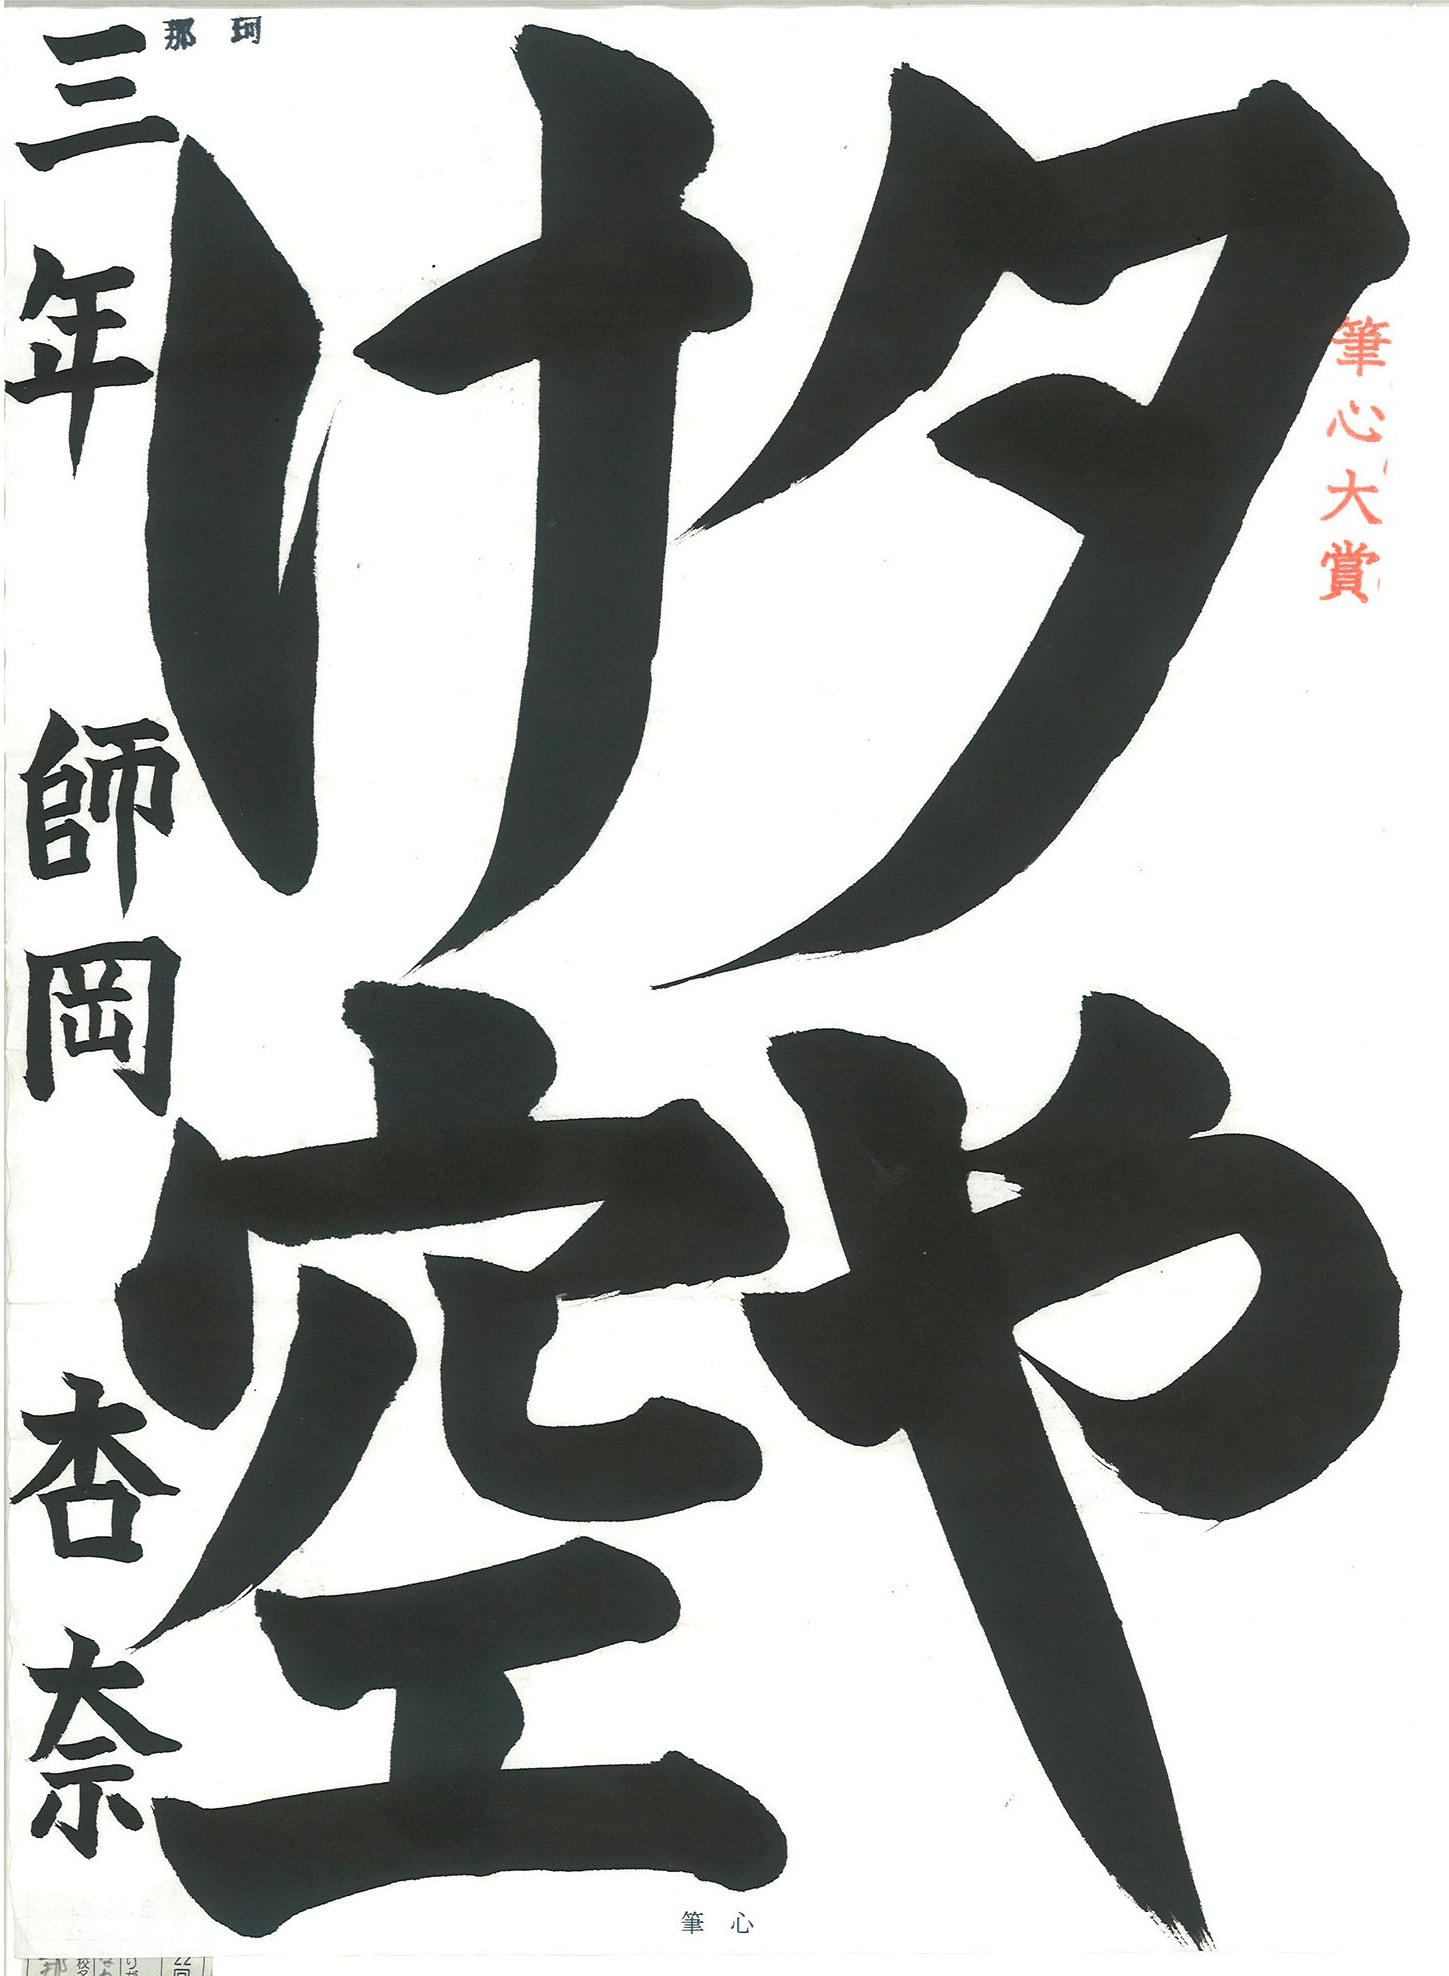 夕や
け空
三年 師岡 杏奈
那珂
筆心大賞
筆心